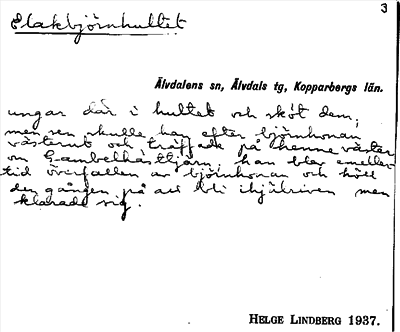 Elakbjörnhultet
3
Älvdalens sn, Älvdals tg, Kopparbergs län.
ungar där i hultet och sköt dem;
men sen skulle han efter björnhonan
västerut och träffade på henne väster
om Gambelhästtjärn; han blev emeller-
tid överfallen av björnhonan och höll
den gången på att bli ihjälriven men
klarade sig.
HELGE LINDBERG 1937.